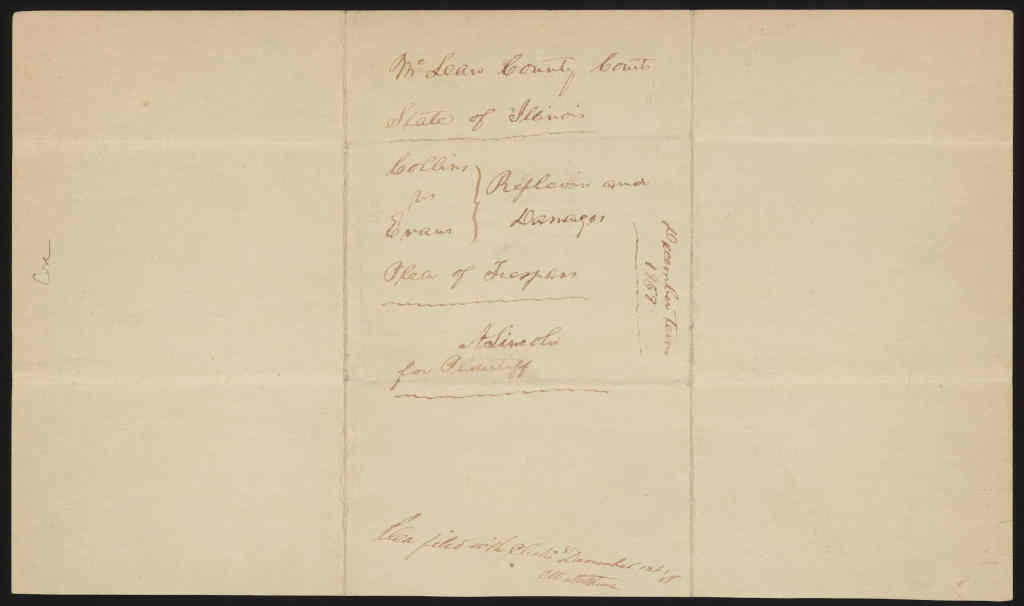 Mc Lean County Court
State of Illinois
Collins
vs
Evans
Replevin and
Damages
Plea of Trespass
A Lincoln
for Plaintiff
December term
1857
Plea filed with Clerk December 1st
Cox